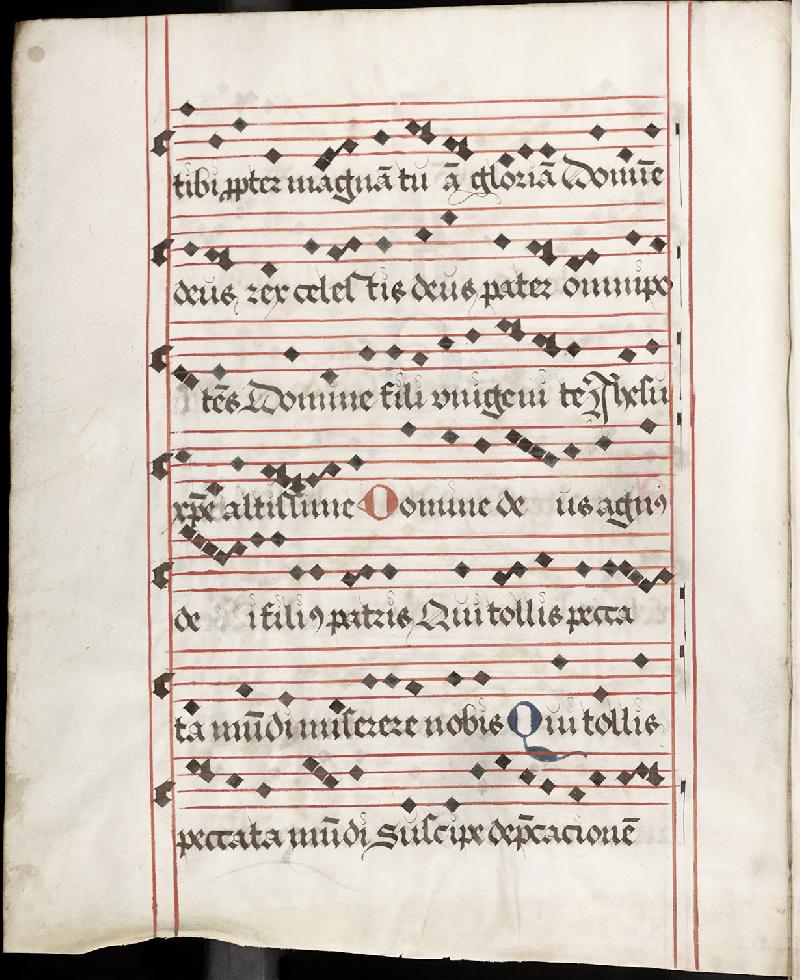 tibi ꝓpter magnā tu ā gloriā Domīe
deus rex celes tis deus pater omnipo
tēs Domine fili vnigeni te Jhesu
xp̄e altissime Domine de us agnꝰ
de i filiꝰ patris Qui tollis pecca
ta mūdi miserere nobis Qui tollis
peccata mūdi Suscipe dep̄cacionē